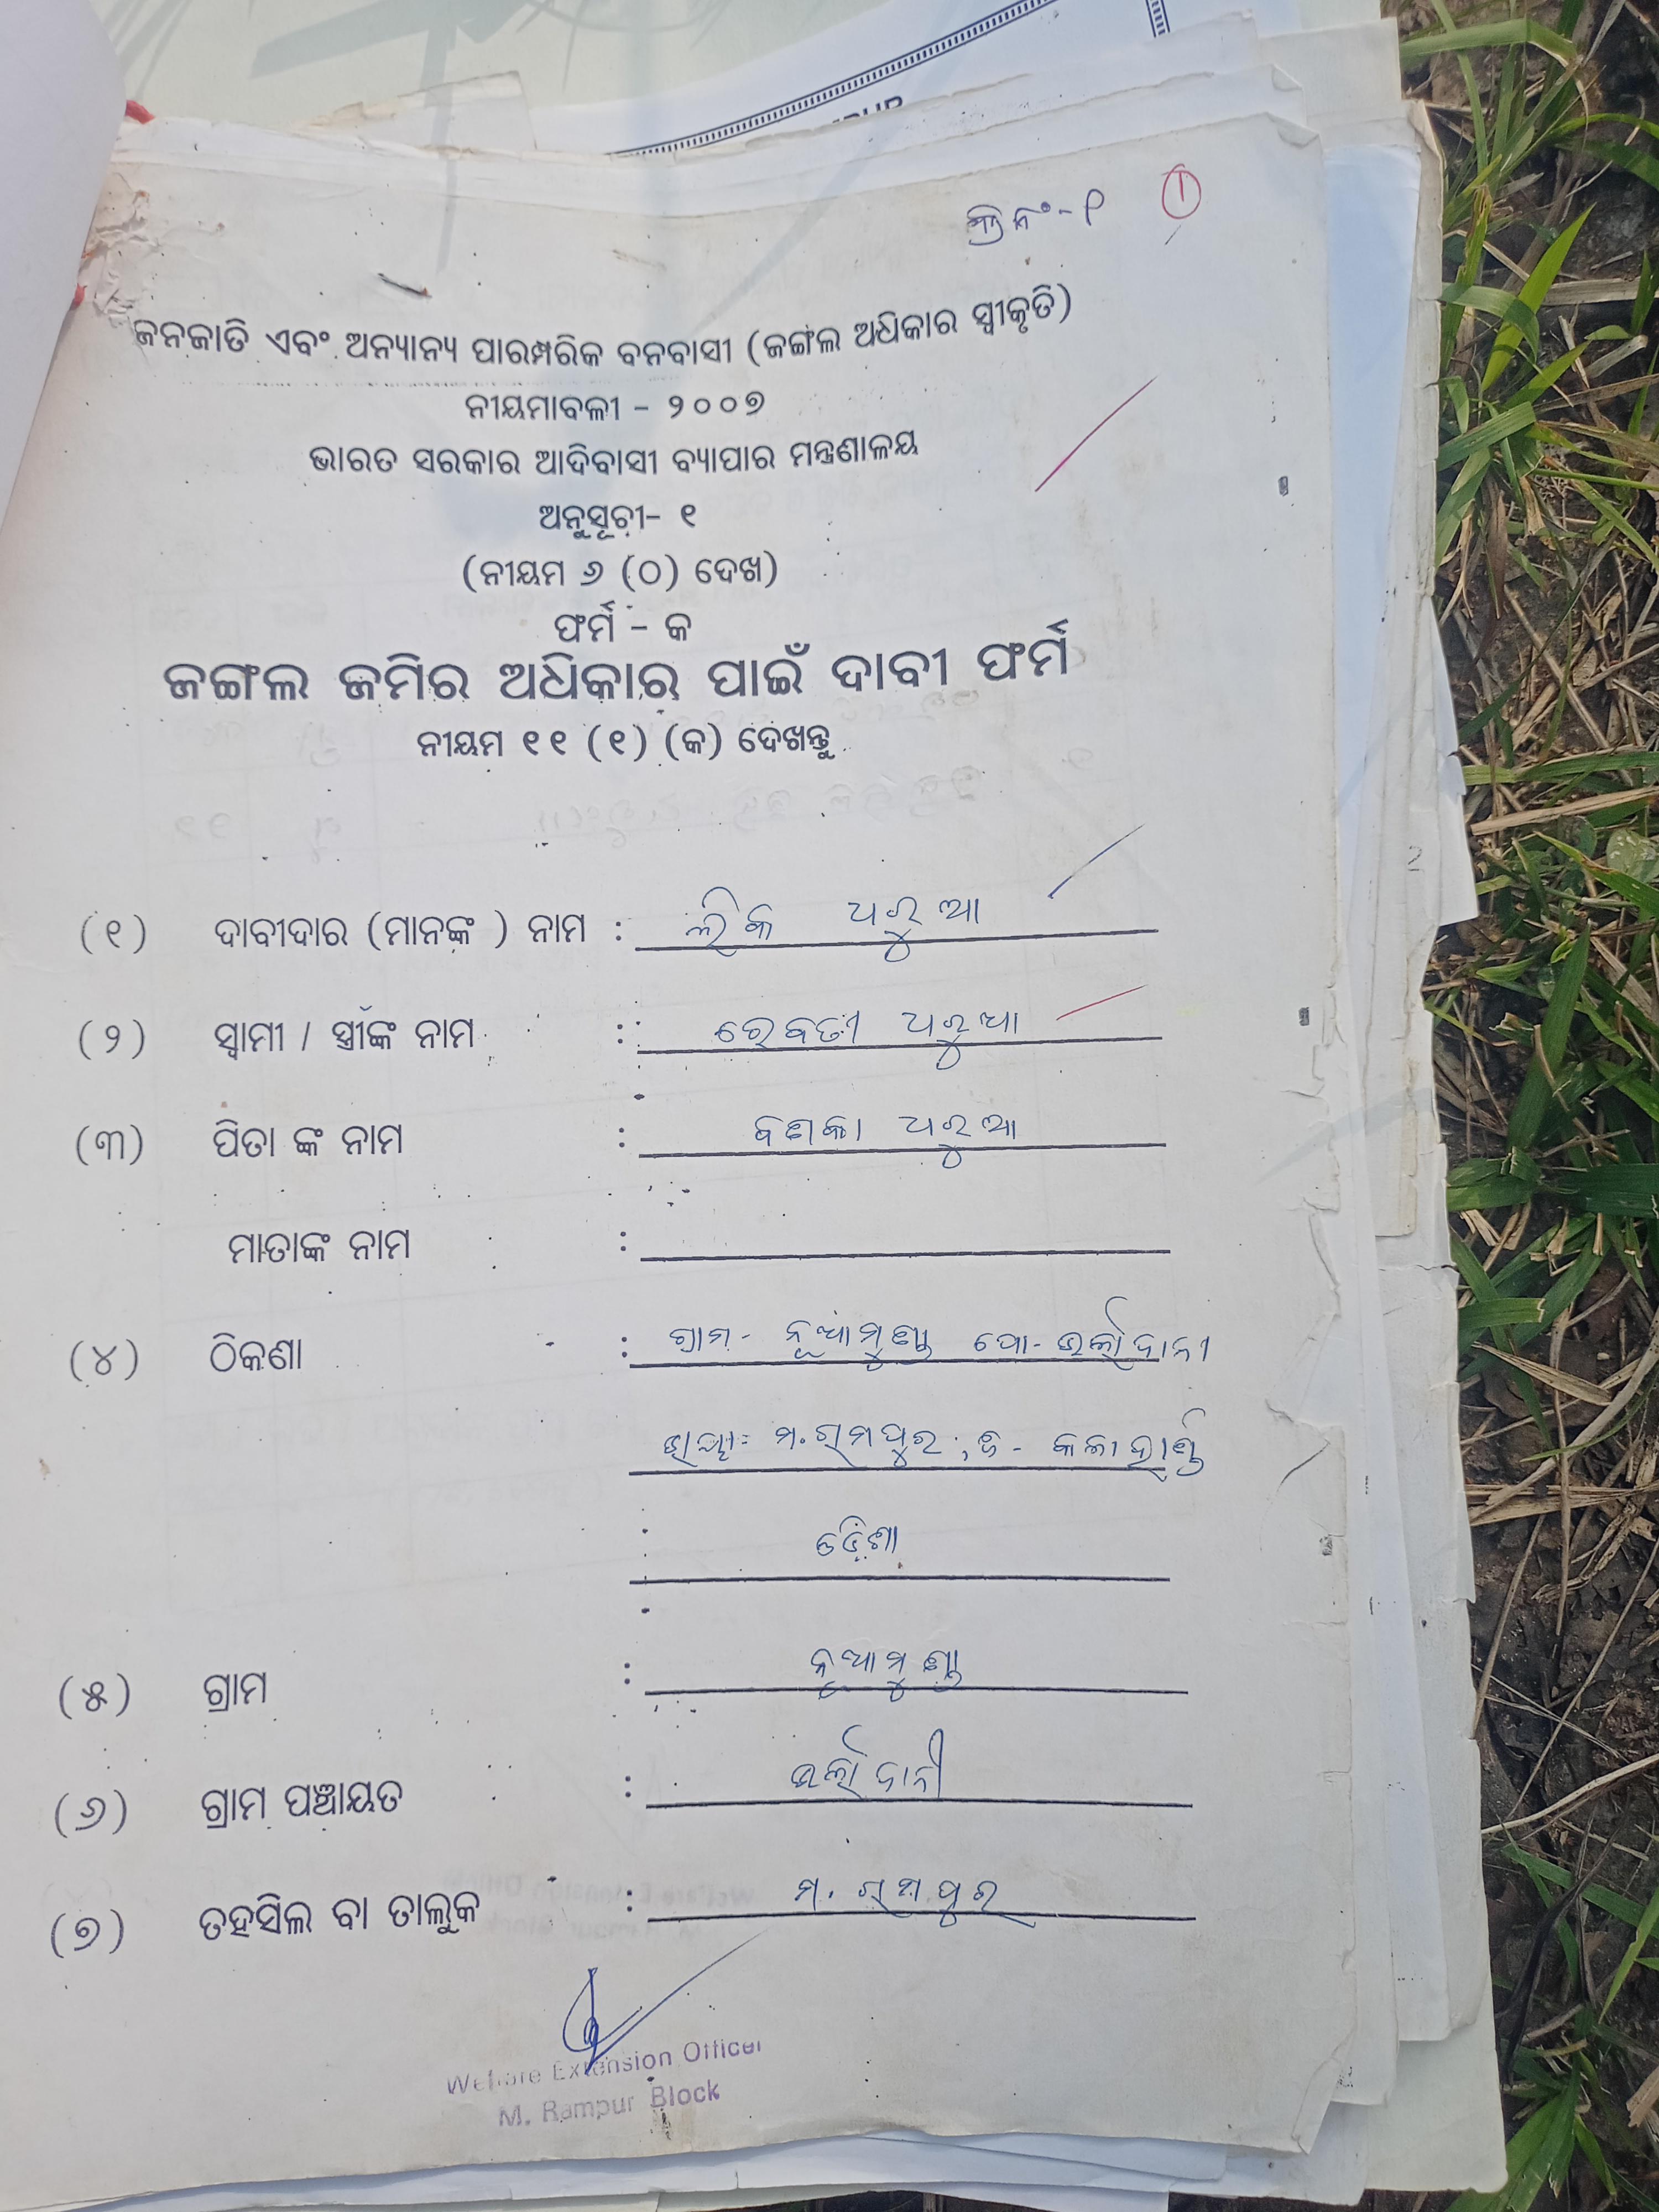 କ୍ର ନଂ-୧ ୧
ଜନଜାତି ଏବଂ ଅନ୍ୟାନ୍ୟ ପାରମ୍ପରିକ ବନବାସୀ (ଜଙ୍ଗଲ ଅଧିକାର ସ୍ୱୀକୃତି)
ନୀୟମାବଳୀ - ୨୦୦୭
ଭାରତ ସରକାର ଆଦିବାସୀ ବ୍ୟାପାର ମନ୍ତ୍ରଣାଳୟ
ଅନୁସୂଚୀ- ୧
(ନୀୟମ ୬ (୦) ଦେଖ)
ଫର୍ମ - କ
ଜଙ୍ଗଲ ଜମିର ଅଧିକାର ପାଇଁ ଦାବୀ ଫର୍ମ
ନୀୟମ ୧୧ (୧) (କ) ଦେଖନ୍ତୁ
(୧) ଦାବୀଦାର (ମାନଙ୍କ ) ନାମ : ଲିକି ଧରୁଆ
(୨) ସ୍ୱାମୀ / ସ୍ତ୍ରୀଙ୍କ ନାମ : ରେବତୀ ଧରୁଆ
(୩) ପିତା ଙ୍କ ନାମ : ଧରୁଆ
ମାତାଙ୍କ ନାମ :
(୪) ଠିକଣା : ଗ୍ରାମ- ନୂଆମୁଣ୍ଡା ପୋ-
ମ.ରାମପୁର, ଜି- କଳାହାଣ୍ଡି
ଓଡ଼ିଶା
(୫) ଗ୍ରାମ : ନୂଆମୁଣ୍ଡା
(୬) ଗ୍ରାମ ପଞ୍ଚାୟତ :
(୭) ତହସିଲ ବା ତାଲୁକ : ମ. ରାମପୁର
Welfare Extension Officer
M. Rampur Block